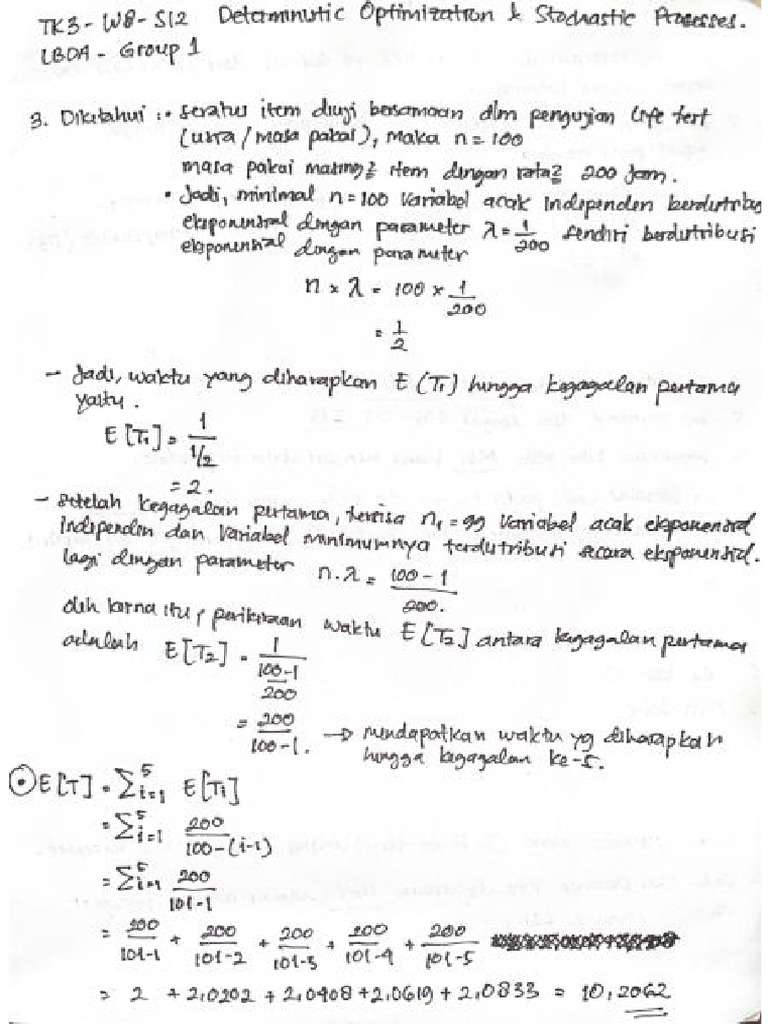 TK3 - W8 - S12 Deterministic Optimization & Stochastic Processes.
LBDA - Group 1
3. Diketahui : • seratus item diuji bersamaan dlm pengujian life test
(usia / masa pakai), maka n = 100
masa pakai masing2 item dengan rata2 200 jam.
• Jadi, minimal n = 100 Variabel acak Independen berdistribusi
eksponensial dengan parameter λ = 1/200 sendiri berdistribusi
eksponensial dengan parameter
n × λ = 100 × 1/200
= 1/2
- Jadi, waktu yang diharapkan E (T1) hingga kegagalan pertama
yaitu.
E [T1] = 1/(1/2)
= 2.
- setelah kegagalan pertama, tersisa n1 = 99 Variabel acak eksponensial
Independen dan Variabel minimumnya terdistribusi secara eksponensial.
lagi dengan parameter n.λ = (100 - 1)/200.
oleh karna itu, perkiraan waktu E [T2] antara kegagalan pertama
adalah E [T2] = 1/((100-1)/200)
= 200/(100-1). → mendapatkan waktu yg diharapkan
hingga kegagalan ke-5.
⊙ E[T] = Σ⁵i=1 E[Ti]
= Σ⁵i=1 200/(100-(i-1))
= Σ⁵i=1 200/(101-i)
= 200/(101-1) + 200/(101-2) + 200/(101-3) + 200/(101-4) + 200/(101-5)
= 2 + 2,0202 + 2,0408 + 2,0619 + 2,0833 = 10,2062